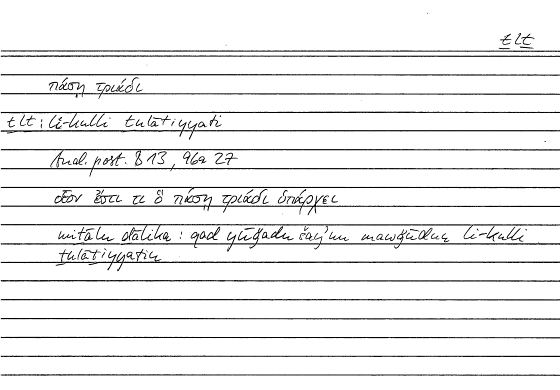 ṯlṯ
πάσῃ τριάδι
ṯlṯ : li-kulli ṯulāṯiyyati
Anal. post. B 13, 96a 27
οἷον ἔστι τι ὃ πάσῃ τριάδι ὑπάρχει
miṯālu ḏālika : qad yūǧadu šayʾun mawǧūdun li-kulli
ṯulāṯiyyatin